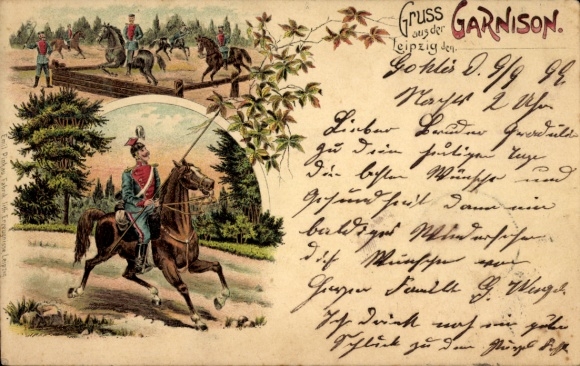 Gruss
aus der
GARNISON.
Leipzig den
Gohlis d. 9/9 99
Nachts 2 Uhr
Lieber Bruder
zu dein heutigen Tage
die besten Wünsche und
Gesundheit dann ein
baldiges Wiedersehen
dies Wünschen von
Familie G.
Ich trink noch ein guten
Schluck zu dem